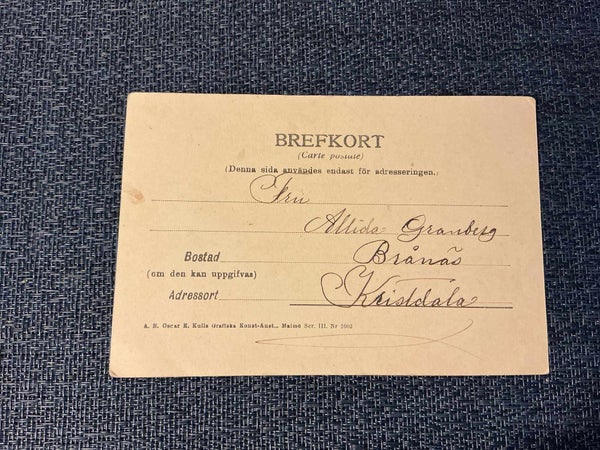 BREFKORT
(Carte postale)
(Denna sida användes endast för adresseringen.)
Fru
Allida Granberg
Bostad Brånäs
(om den kan uppgifvas)
Adressort Kristdala
A. B. Oscar E. Kulls Grafiska Konst-Anst., Malmö Ser. III. Nr 1002